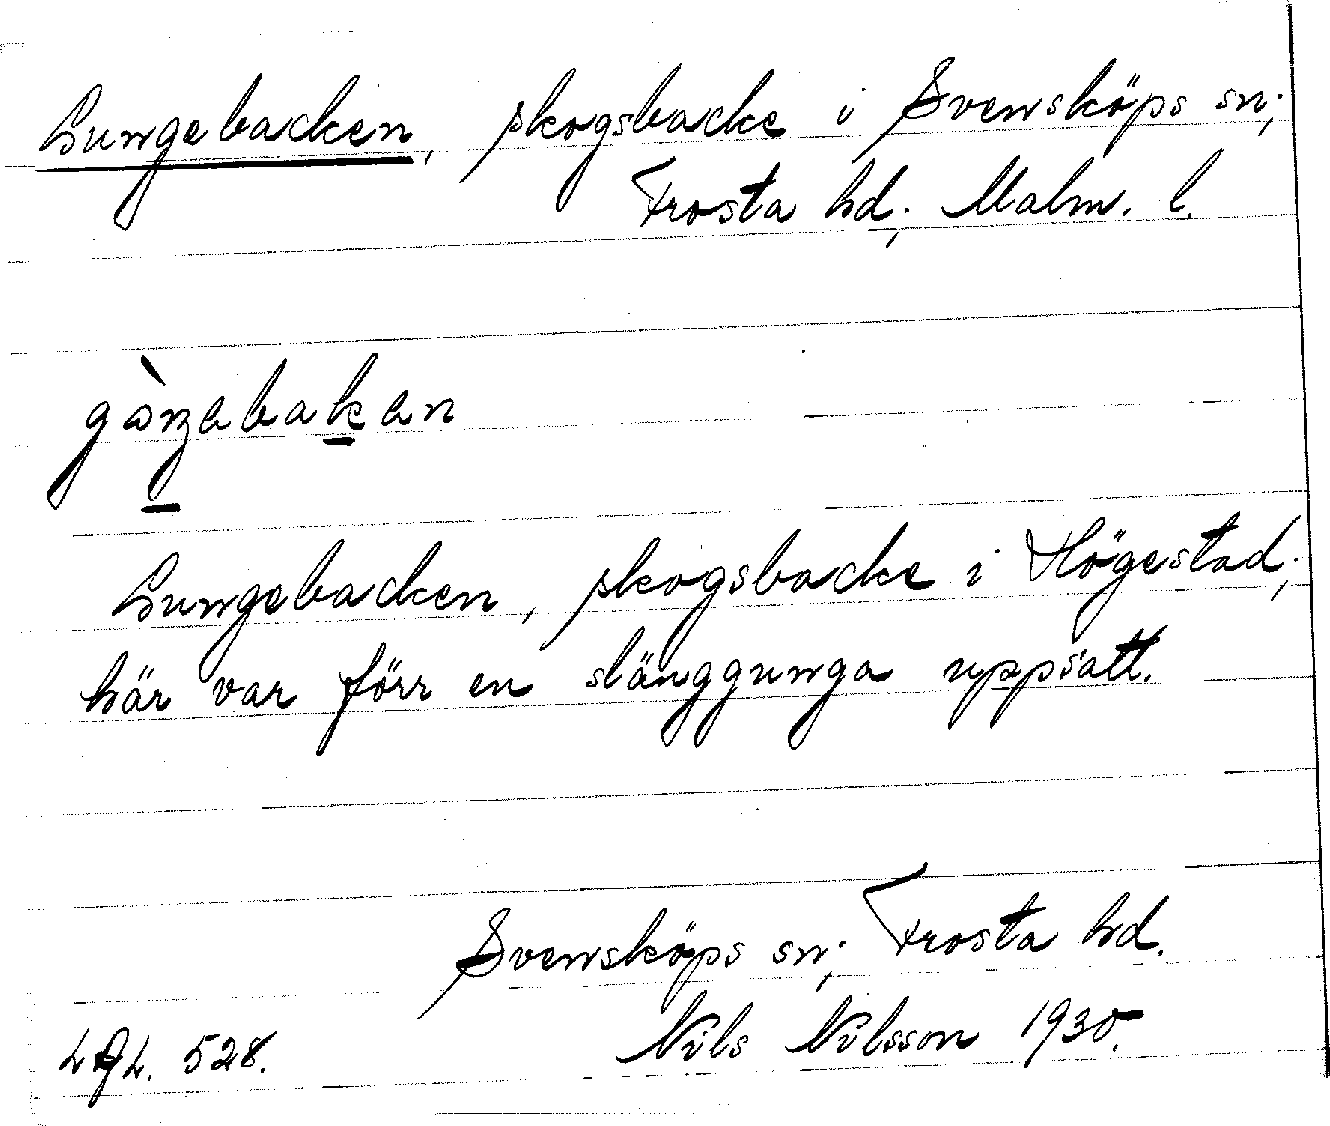 Gungebacken, skogsbacke i Svensköps sn;
Frosta hd; Malm. l.
gòŋəbakən
Gungebacken, skogsbacke i Högestad;
här var förr en slänggunga uppsatt.
Svensköps sn; Frosta hd.
LAL. 528. Nils Nilsson 1930.